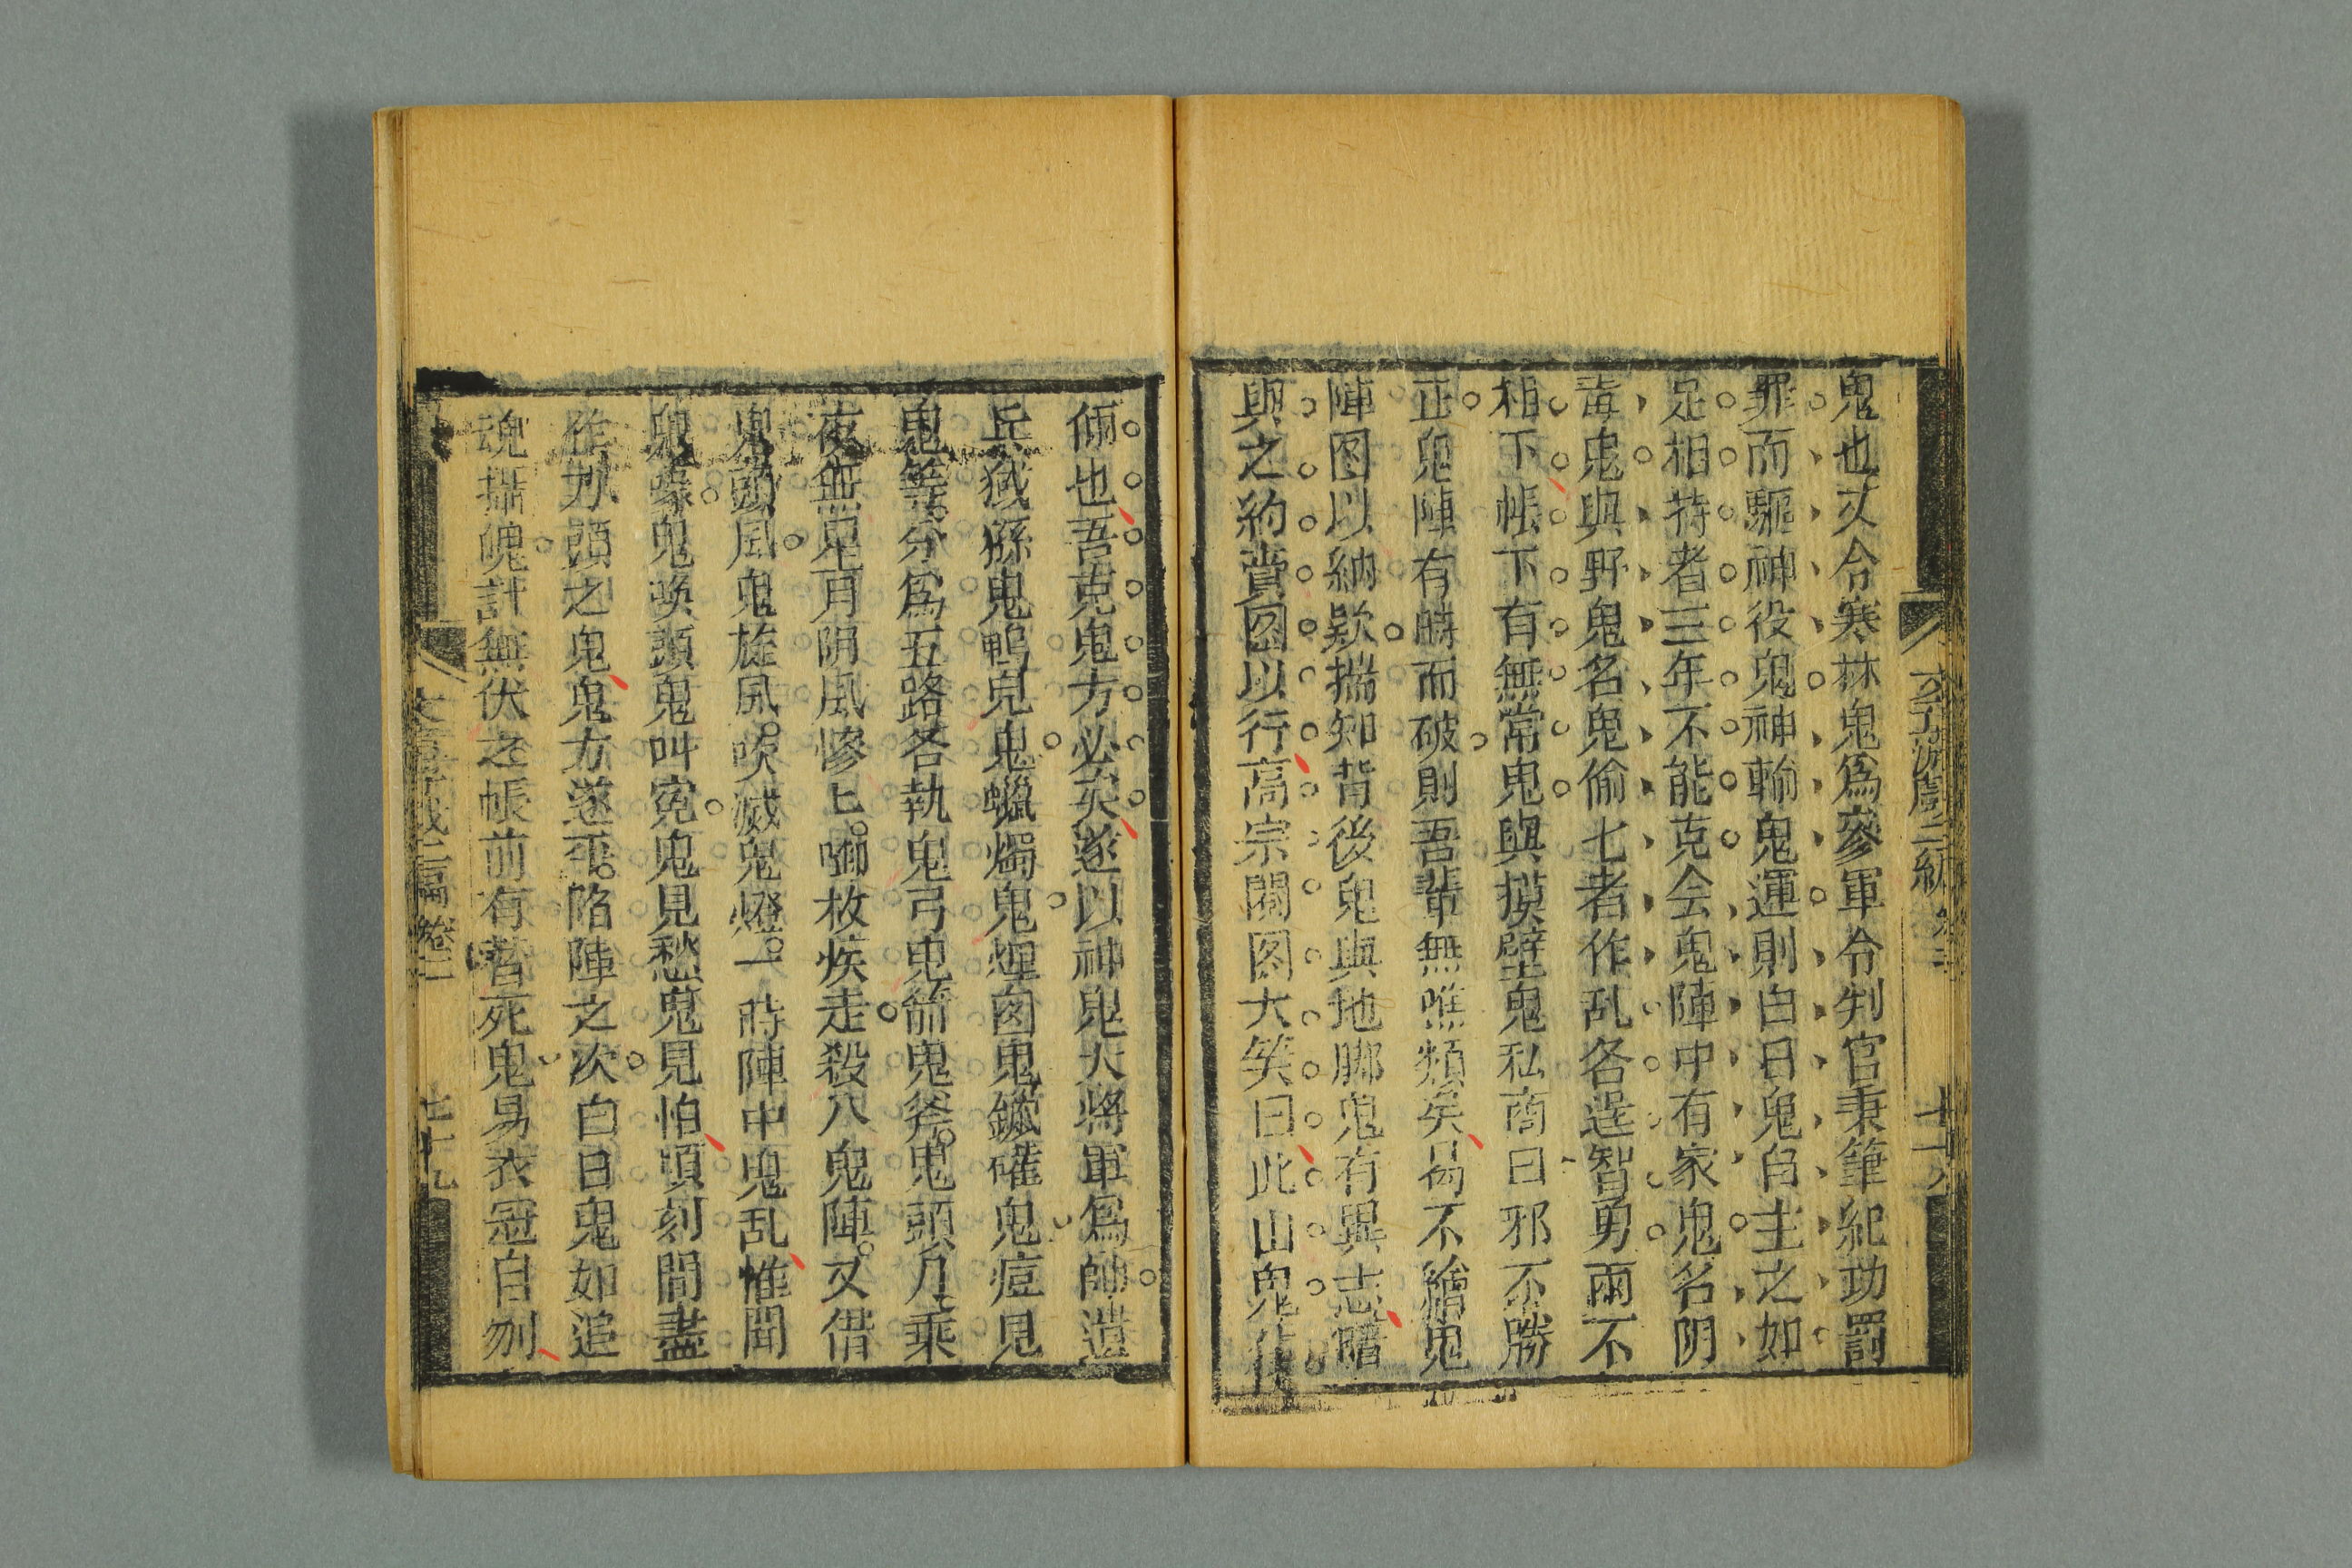 鬼也又令寒林鬼爲參軍令判官秉筆紀功罰
罪而驅神役鬼神輸鬼運則白日鬼自主之如
足相持者三年不能克会鬼陣中有家鬼名阴
毒鬼與野鬼名鬼偷七者作乱各逞智勇兩不
相下帳下有無常鬼與摸壁鬼私商曰邪不勝
正鬼陣有時而破則吾輩無噍類矣曷不繪鬼
陣图以納欵揣知背後鬼與地脚鬼有異志暗
與之約賫图以行高宗閱图大笑曰此山鬼伎
倆也吾克鬼方必矣遂以神鬼大將軍爲帥遣
兵猺鬼鴨鬼蠟燭鬼煙囱鬼鐵礶鬼痘兒
鬼等分爲五路各執鬼弓鬼箭鬼斧鬼頭刀乘
夜無星月阴風慘上啣枚疾走殺入鬼陣又借
鬼頭風鬼旋風吹滅鬼燈一時陣中鬼乱惟聞
鬼嚎鬼喚頭鬼叫寃鬼見愁鬼見怕頃刻間盡
作刼頭之鬼鬼方遂平陷陣之次白日鬼如追
魂攝魄計無伏之帳前有替死鬼易衣冠自刎
文章游戲二編 卷二
七十九